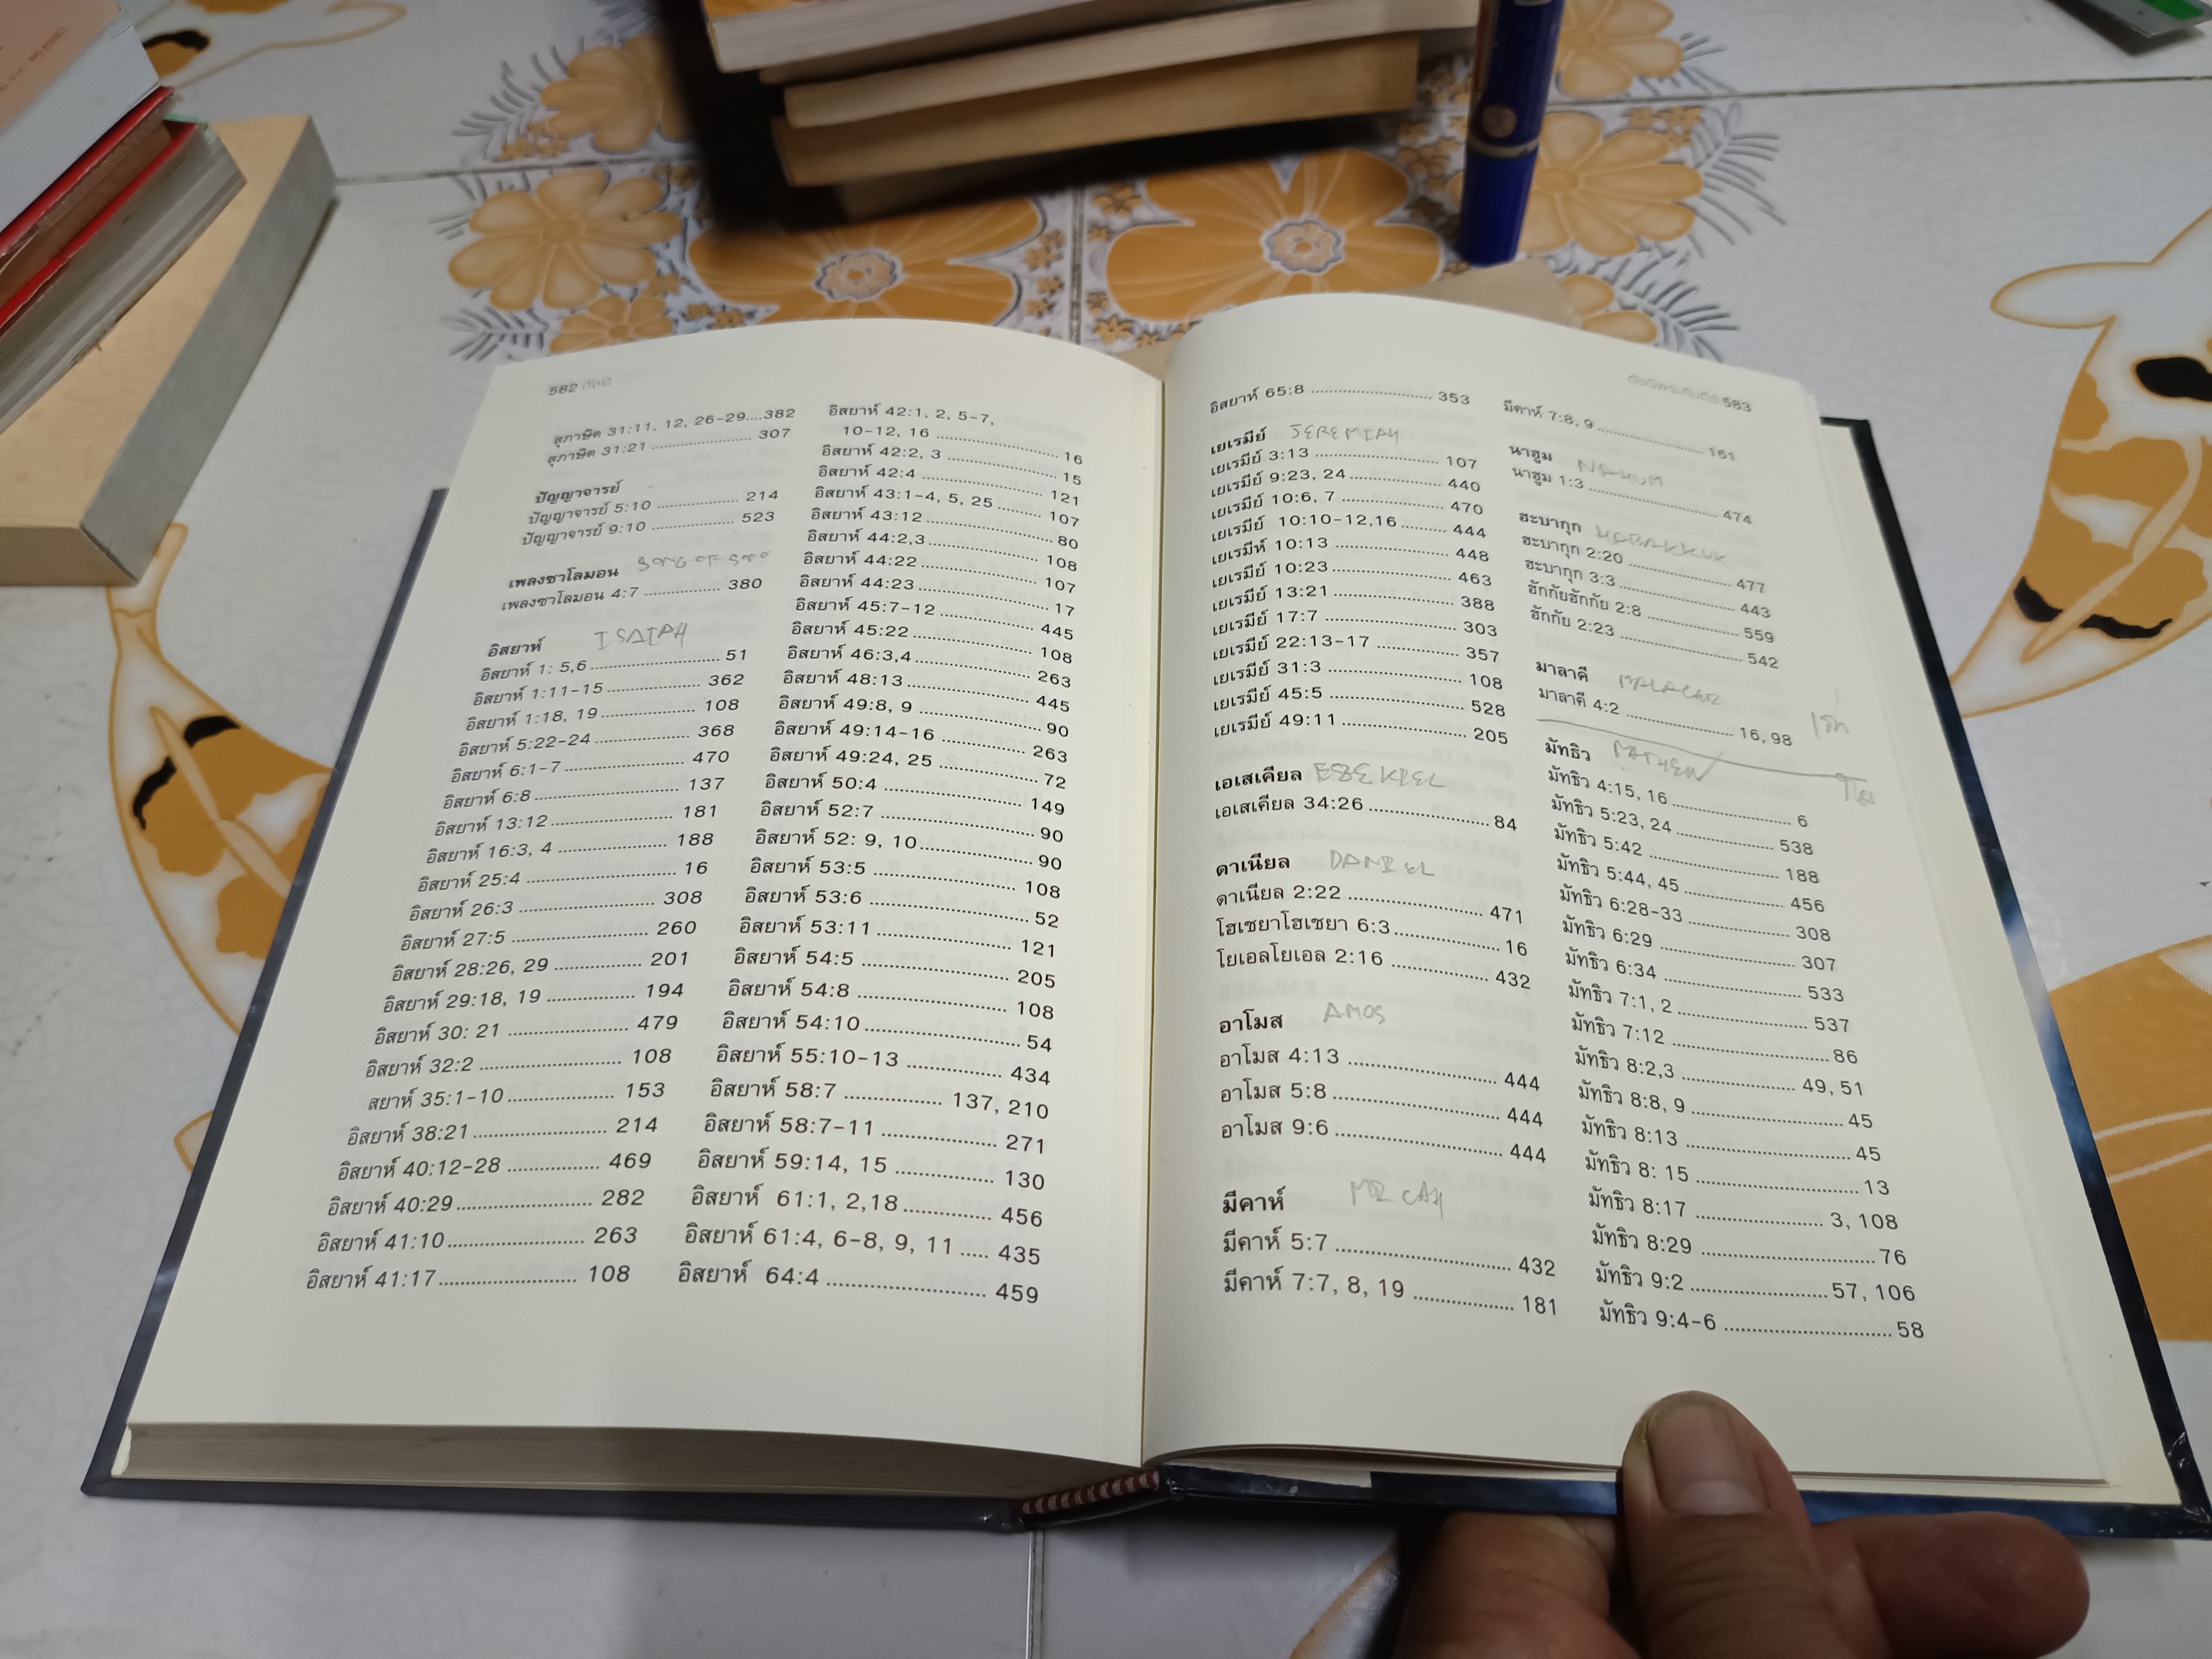 582 ดัชนี
สุภาษิต 31:11, 12, 26-29....382
สุภาษิต 31:21 ........................ 307
ปัญญาจารย์
ปัญญาจารย์ 5:10 .................... 214
ปัญญาจารย์ 9:10 .................... 523
เพลงซาโลมอน SONG OF SOLO
เพลงซาโลมอน 4:7 .................. 380
อิสยาห์ ISAIAH
อิสยาห์ 1: 5,6 ............................ 51
อิสยาห์ 1:11-15 ...................... 362
อิสยาห์ 1:18, 19 ...................... 108
อิสยาห์ 5:22-24 ...................... 368
อิสยาห์ 6:1-7 .......................... 470
อิสยาห์ 6:8 .............................. 137
อิสยาห์ 13:12 .......................... 181
อิสยาห์ 16:3, 4 ........................ 188
อิสยาห์ 25:4 .............................. 16
อิสยาห์ 26:3 ............................ 308
อิสยาห์ 27:5 ............................ 260
อิสยาห์ 28:26, 29 .................... 201
อิสยาห์ 29:18, 19 .................... 194
อิสยาห์ 30: 21 ........................ 479
อิสยาห์ 32:2 ............................ 108
สยาห์ 35:1-10 ........................ 153
อิสยาห์ 38:21 .......................... 214
อิสยาห์ 40:12-28 .................... 469
อิสยาห์ 40:29 .......................... 282
อิสยาห์ 41:10 .......................... 263
อิสยาห์ 41:17 .......................... 108
อิสยาห์ 42:1, 2, 5-7,
10-12, 16 .......................... 16
อิสยาห์ 42:2, 3 .......................... 15
อิสยาห์ 42:4 ............................ 121
อิสยาห์ 43:1-4, 5, 25 .............. 107
อิสยาห์ 43:12 ............................ 80
อิสยาห์ 44:2,3 ........................ 108
อิสยาห์ 44:22 .......................... 107
อิสยาห์ 44:23 ............................ 17
อิสยาห์ 45:7-12 ...................... 445
อิสยาห์ 45:22 .......................... 108
อิสยาห์ 46:3,4 ........................ 263
อิสยาห์ 48:13 .......................... 445
อิสยาห์ 49:8, 9 .......................... 90
อิสยาห์ 49:14-16 .................... 263
อิสยาห์ 49:24, 25 ...................... 72
อิสยาห์ 50:4 ............................ 149
อิสยาห์ 52:7 .............................. 90
อิสยาห์ 52: 9, 10 ...................... 90
อิสยาห์ 53:5 ............................ 108
อิสยาห์ 53:6 .............................. 52
อิสยาห์ 53:11 .......................... 121
อิสยาห์ 54:5 ............................ 205
อิสยาห์ 54:8 ............................ 108
อิสยาห์ 54:10 ............................ 54
อิสยาห์ 55:10-13 .................... 434
อิสยาห์ 58:7 .................... 137, 210
อิสยาห์ 58:7-11 ...................... 271
อิสยาห์ 59:14, 15 .................... 130
อิสยาห์ 61:1, 2,18 .................. 456
อิสยาห์ 61:4, 6-8, 9, 11 ..... 435
อิสยาห์ 64:4 ............................ 459
ดัชนีพระคัมภีร์ 583
อิสยาห์ 65:8 ............................ 353
เยเรมีย์ JEREMIAH
เยเรมีย์ 3:13 ............................ 107
เยเรมีย์ 9:23, 24 ...................... 440
เยเรมีย์ 10:6, 7 ........................ 470
เยเรมีย์ 10:10-12,16 ............ 444
เยเรมีห์ 10:13 .......................... 448
เยเรมีย์ 10:23 .......................... 463
เยเรมีย์ 13:21 .......................... 388
เยเรมีย์ 17:7 ............................ 303
เยเรมีย์ 22:13-17 .................... 357
เยเรมีย์ 31:3 ............................ 108
เยเรมีย์ 45:5 ............................ 528
เยเรมีย์ 49:11 .......................... 205
เอเสเคียล EZEKIEL
เอเสเคียล 34:26 ........................ 84
ดาเนียล DANIEL
ดาเนียล 2:22 .......................... 471
โฮเชยาโฮเชยา 6:3 .................... 16
โยเอลโยเอล 2:16 .................... 432
อาโมส AMOS
อาโมส 4:13 ............................ 444
อาโมส 5:8 .............................. 444
อาโมส 9:6 .............................. 444
มีคาห์ MICAH
มีคาห์ 5:7 .............................. 432
มีคาห์ 7:7, 8, 19 .................... 181
มีคาห์ 7:8, 9 .......................... 161
นาฮูม NAHUM
นาฮูม 1:3 .............................. 474
ฮะบากุก HABAKKUK
ฮะบากุก 2:20 .......................... 477
ฮะบากุก 3:3 ............................ 443
ฮักกัยฮักกัย 2:8 ...................... 559
ฮักกัย 2:23 ............................ 542
มาลาคี MALACHI
มาลาคี 4:2 .......................... 16, 98
มัทธิว MATHEW
มัทธิว 4:15, 16 ............................ 6
มัทธิว 5:23, 24 ...................... 538
มัทธิว 5:42 ............................ 188
มัทธิว 5:44, 45 ...................... 456
มัทธิว 6:28-33 ...................... 308
มัทธิว 6:29 ............................ 307
มัทธิว 6:34 ............................ 533
มัทธิว 7:1, 2 .......................... 537
มัทธิว 7:12 .............................. 86
มัทธิว 8:2,3 ........................ 49, 51
มัทธิว 8:8, 9 ............................ 45
มัทธิว 8:13 .............................. 45
มัทธิว 8: 15 .............................. 13
มัทธิว 8:17 .......................... 3, 108
มัทธิว 8:29 .............................. 76
มัทธิว 9:2 .......................... 57, 106
มัทธิว 9:4-6 ............................ 58